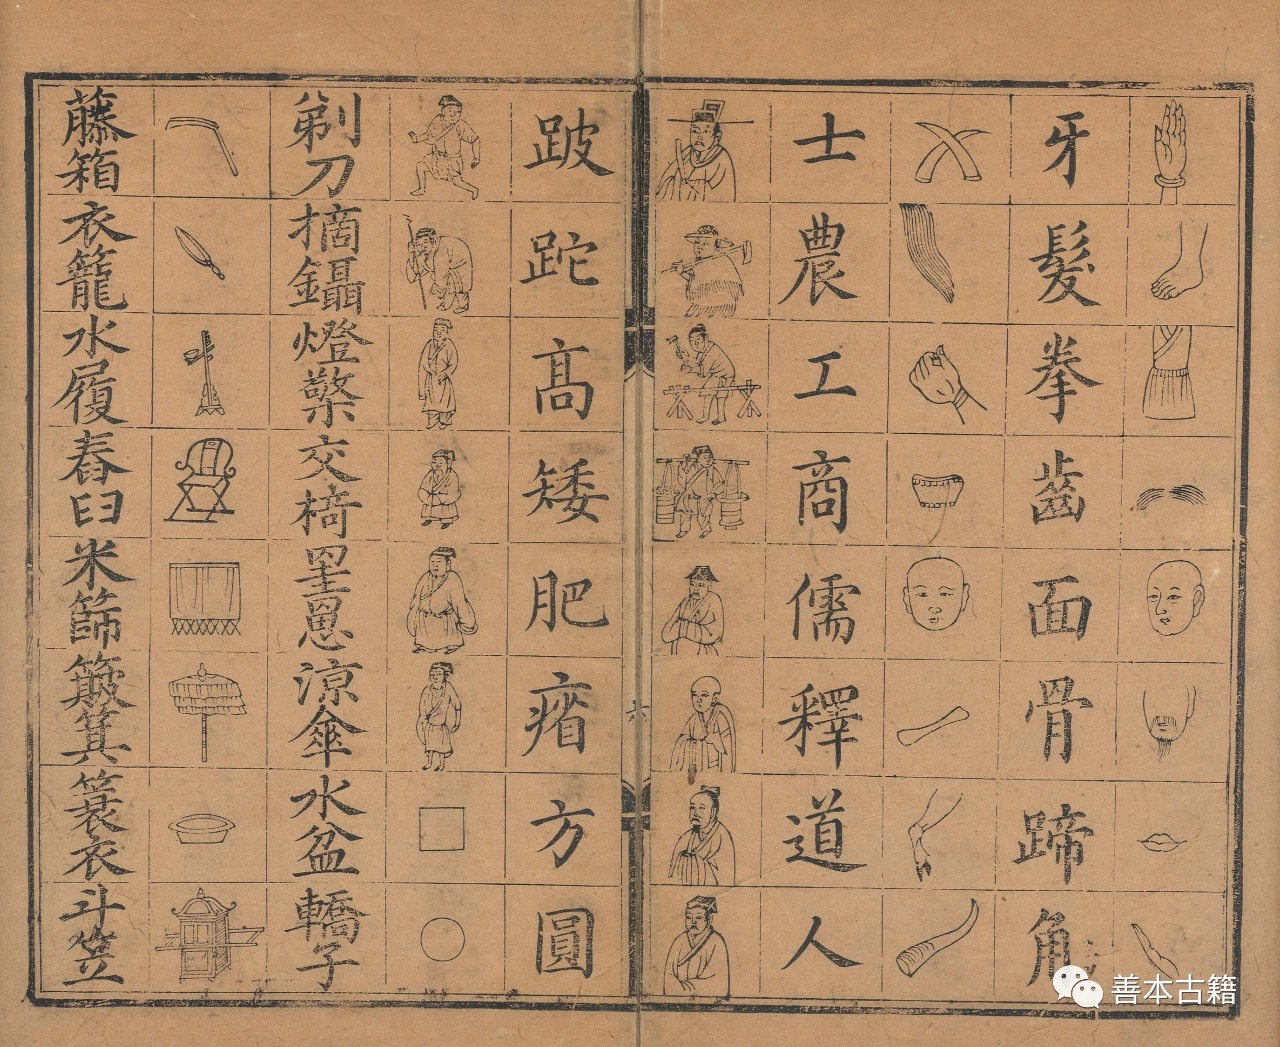 牙
髮
拳
齒
面
骨
蹄
角
士
農
工
商
儒
釋
道
人
六
跛
跎
高
矮
肥
瘠
方
圓
剃刀
摘鑷
燈檠
交椅
罣罳
涼傘
水盆
轎子
籐箱
衣籠
水履
舂臼
米篩
簸箕
簑衣
斗笠
善本古籍